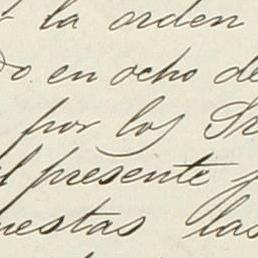 la orden
en ocho de
por los Sr
presente
uestas las